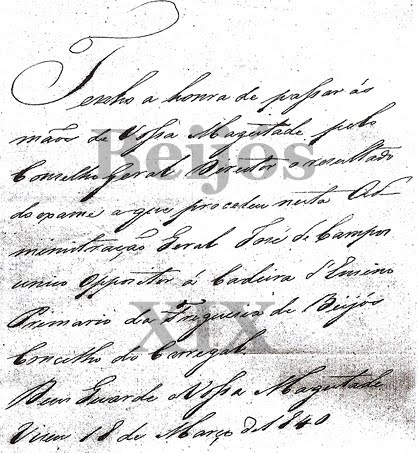 Tenho a honra de passar ás
mãos de Vossa Magestade pelo
Beijós
Conselho Geral Director o resultado
do exame a que procedeu nesta Ad-
ministração Geral José de Campos
unico Oppositor á Cadeira d'Ensino
Primario da Freguesia de Beijós
XIX
Concelho do Carregal.
Deus Guarde Vossa Magestade
Viseu 18 de Março de 1840